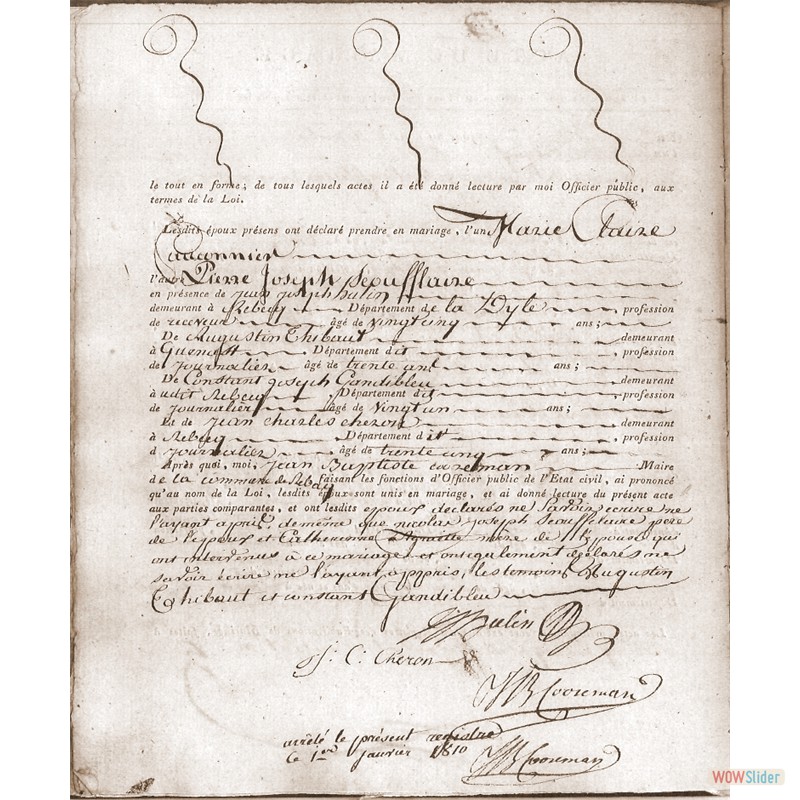 le tout en forme; de tous lesquels actes il a été donné lecture par moi Officier public, aux
termes de la Loi.
Lesdits époux présens ont déclaré prendre en mariage, l'un Marie Claire
l'autre Pierre Joseph Sepufflaire
en présence de jean joseph
demeurant à Rebecq Département de la Dyle profession
de receveur âgé de vingtcinq ans;
De Augustin Thibaut demeurant
à Quenast Département dit profession
de journalier âgé de trente ans;
De Constant joseph Gandibleu demeurant
audit Rebecq Département dit profession
de journalier âgé de vingtun ans;
Et de jean charles cheron demeurant
à Rebecq Département dit profession
d journalier âgé de trente cinq ans;
Après quoi, moi, jean Baptiste Maire
de la commune de Rebecq faisant les fonctions d'Officier public de l'Etat civil, ai prononcé
qu'au nom de la Loi, lesdits époux sont unis en mariage, et ai donné lecture du présent acte
aux parties comparantes, et ont lesdits epoux declarés ne savoir ecrire ne
l'ayant apris. demême que nicolas joseph pere
de l'epoux et Catherienne mère de l'epouse qui
ont intervenus a ce mariage et ont egalement declarés ne
savoir écrire ne l'ayant appris, les temoins Augustin
Thibaut et constant Gandibleu
J. C. Cheron
JB Cooreman
arrêté le présent registre
ce 1er janvier 1810 JB Cooreman
WOWSlider